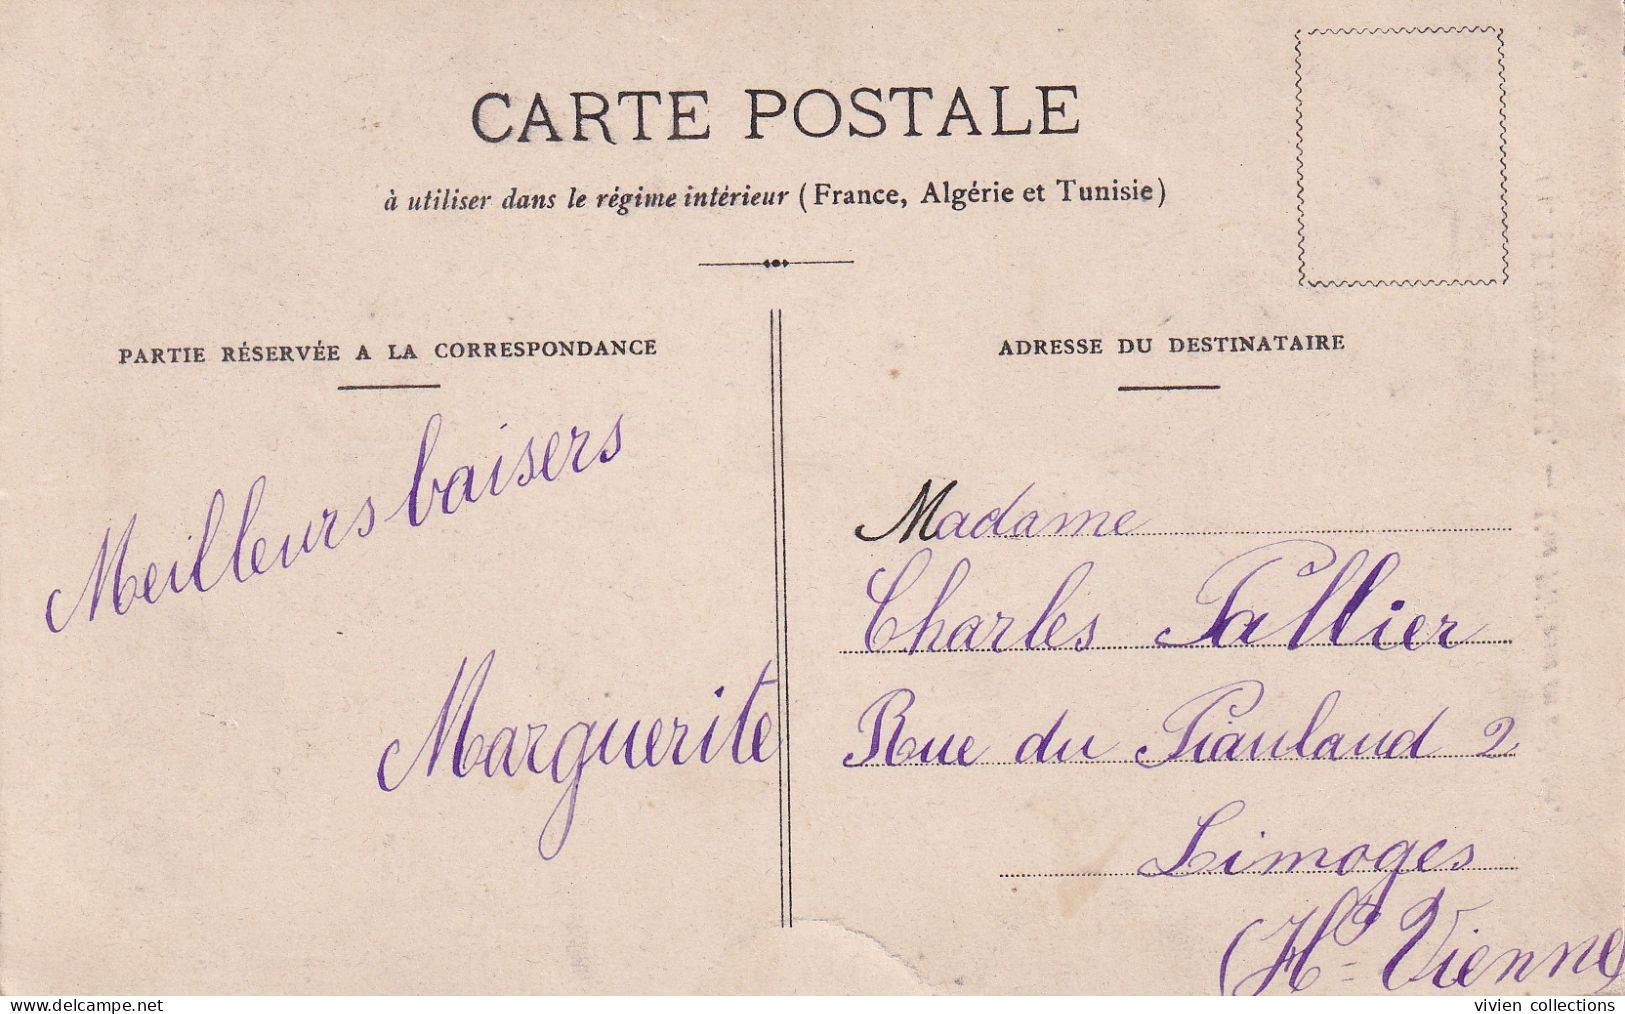 CARTE POSTALE
à utiliser dans le régime intérieur (France, Algérie et Tunisie)
PARTIE RÉSERVÉE A LA CORRESPONDANCE
Meilleurs baisers
Marguerite
ADRESSE DU DESTINATAIRE
Madame
Charles Pallier
Rue du Pianlaud 2
Limoges
(Hte Vienne)
vivien collections